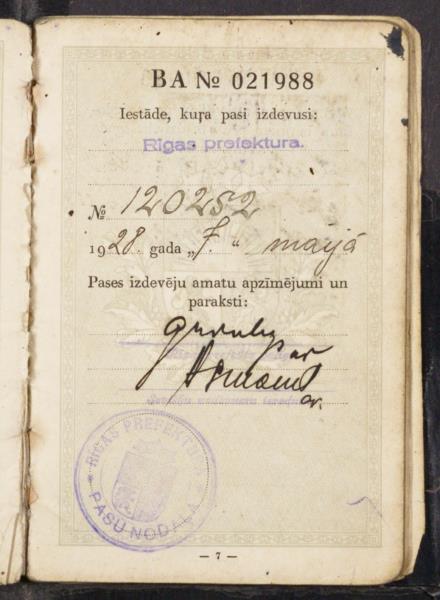 BA № 021988
Iestāde, kuŗa pasi izdevusi:
Rīgas prefektura.
№ 120252
1928. gada „7.“ maijā
Pases izdevēju amatu apzīmējumi un
paraksti:
RĪGAS PREFEKTU
PASU NODAĻA
— 7 —